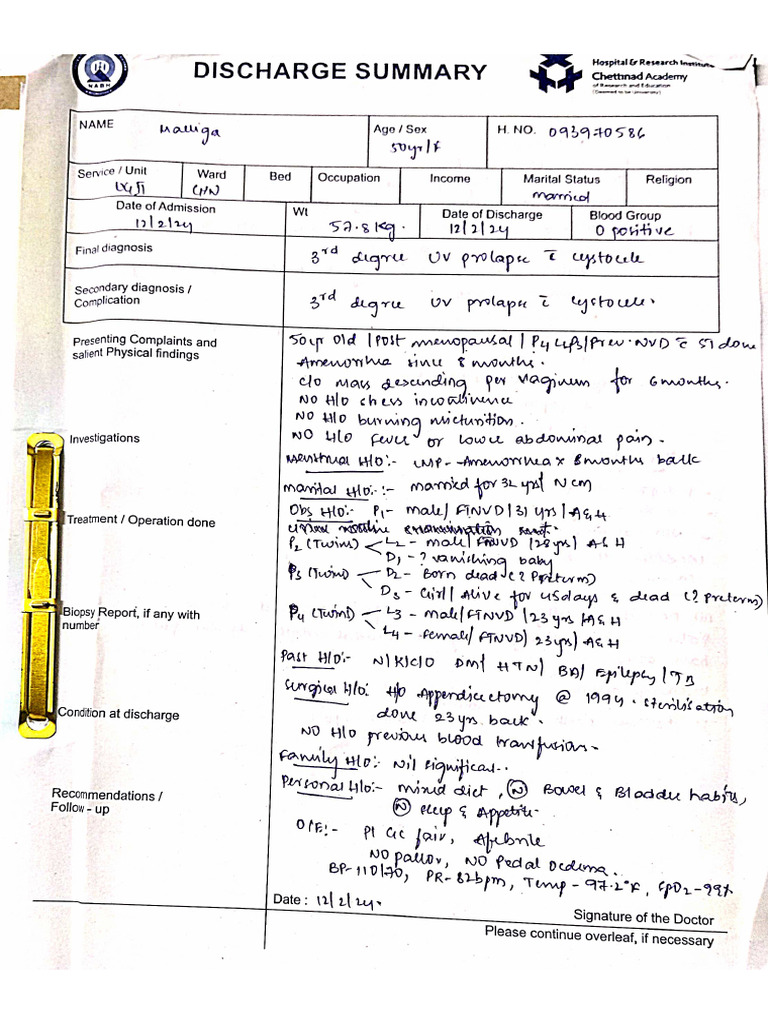 NABH
DISCHARGE SUMMARY
Hospital & Research Institute
Chettinad Academy
of Research and Education
(Deemed to be University)
NAME Malliga
Age / Sex 50yr/F
H. NO. 093970586
Service / Unit
Ward
Bed
Occupation
Income
Marital Status
Religion
married
Date of Admission
Wt
Date of Discharge
Blood Group
12/2/24
57.8 kg.
12/2/24
O positive
Final diagnosis
3rd degree UV prolapse c̄ cystocele
Secondary diagnosis /
Complication
3rd degree UV prolapse c̄ cystocele.
Presenting Complaints and
salient Physical findings
50yr old / Post menopausal / P4L4 /Prev. NVD c̄ S1 done
Amenorrhea since 8 months.
C/o mass descending per vaginum for 6 months.
NO H/o incontinence
NO H/o burning micturition.
NO H/o fever or lower abdominal pain.
Investigations
Menstrual H/O:- LMP - Amenorrhea x 8 months back
Marital H/O:- married for 32 yrs/ NCM
Treatment / Operation done
Obs H/O:- P1- male/ FTNVD /31 yrs / A&H
P2 (Twins) L2 - male/ FTNVD /28 yrs/ A&H
D1 - ? vanishing baby
P3 (Twins) D2 - Born dead (? Preterm)
D3 - Girl/ Alive for 45days & dead (? preterm)
Biopsy Report, if any with
number
P4 (Twins) L3 - male/ FTNVD /23 yrs /A&H
L4 - female/ FTNVD/ 23 yrs/ A&H
Past H/O:- N/K/C/O DM/ HTN/ BA/ Epilepsy / TB
Surgical H/O: H/o Appendicectomy @ 1994. Sterilisation
done 23 yrs back.
Condition at discharge
NO H/O previous blood transfusion.
Family H/O:- Nil significant.
Personal H/O:- mixed diet, (N) Bowel & Bladder habits,
(N) sleep & Appetite.
Recommendations /
Follow - up
O/E:- Pt GC fair, Afebrile
NO pallor, NO Pedal Oedema.
BP-110/70, PR-82bpm, Temp-97.2°F, SpO2-99%
Date : 12/2/24.
Signature of the Doctor
Please continue overleaf, if necessary